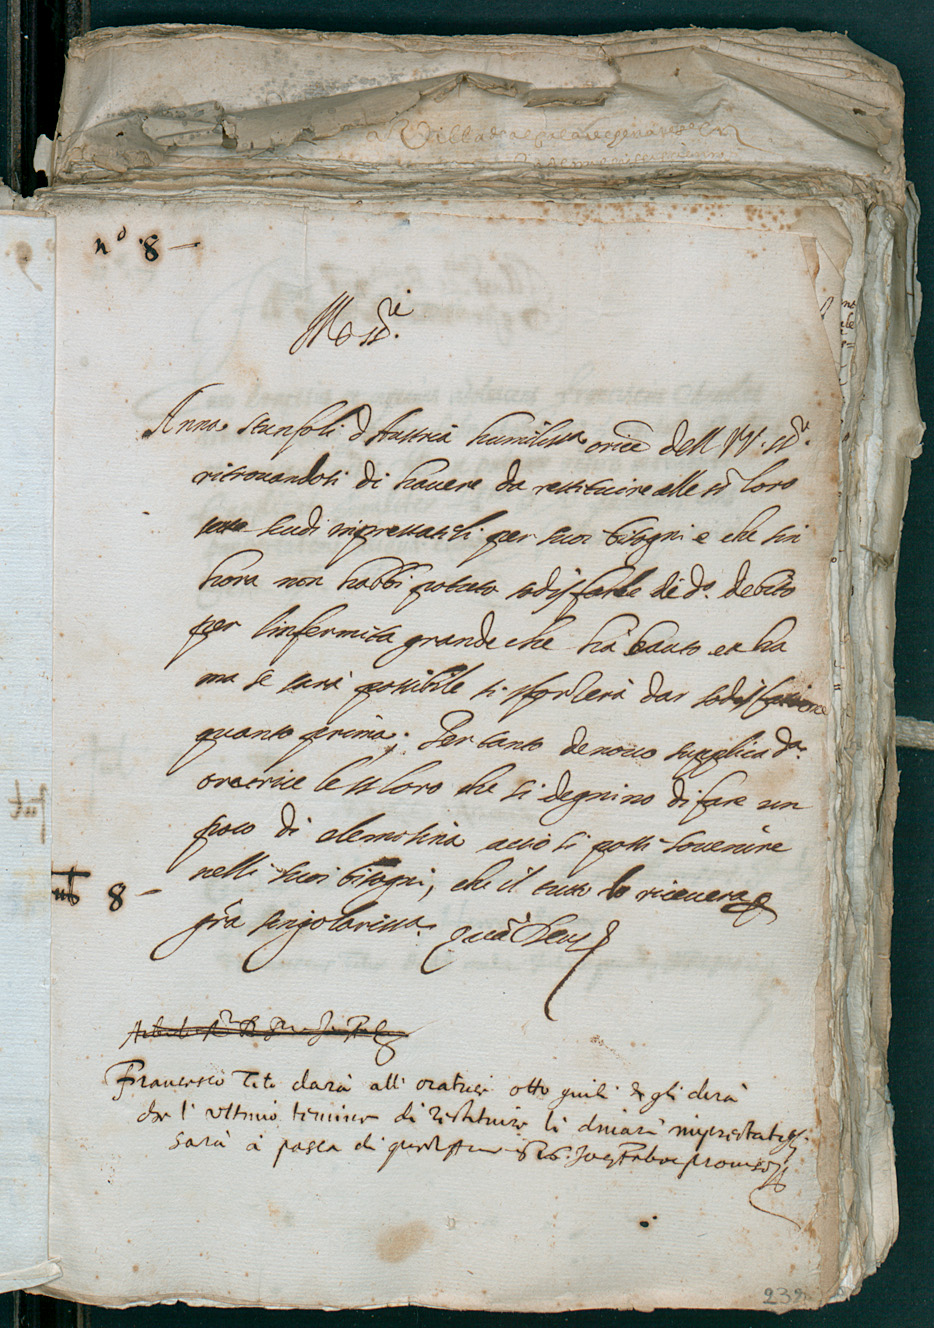 n° 8 —
Anna Stanfoli d'Austria humiliss.ma ... dell VV. SS.re
ritrovandosi di havere da restituire alle SS. loro
scudi imprestatili per suoi bisogni e che sin
hora non habbi potuto sodisfarle di d.o debito
per l'infermità grande che hà hauto et ha
ma se sarà possibile si sforzerà dar sodisfatione
quanto prima. Per tanto denovo supplica d.a
oratrice le SS loro che si degnino di fare un
poco di elemosina acciò si possi sovenire
nelli suoi bisogni, che il tutto lo riceverà
gr̃a singolariss.a quã Deus
8 —
Francesco Titi darà all' oratrice otto giulii & gli dirà
che l' ultimo termine di restituire li dinari imprestatigli
sarà à pasca di
239